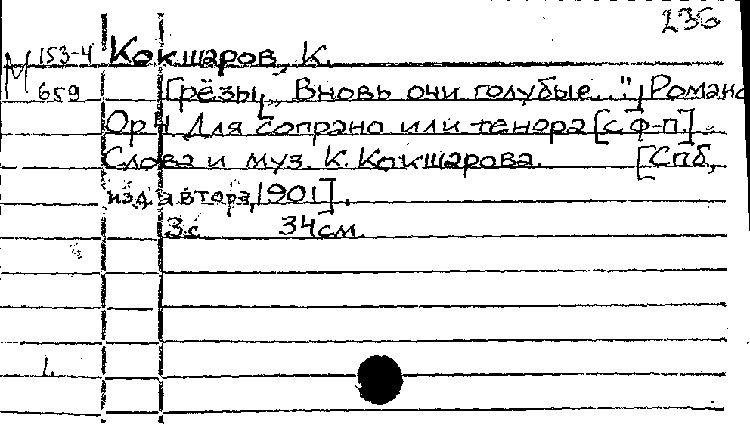 236
М 153-4 Кокшаров, К.
659 Грёзы. "Вновь очи голубые..." Романс
Ор 4 Для сопрано или тенора [с ф-п.]
Слова и муз. К. Кокшарова. [Спб,
изд. автора, 1901].
3с 34см.
1.